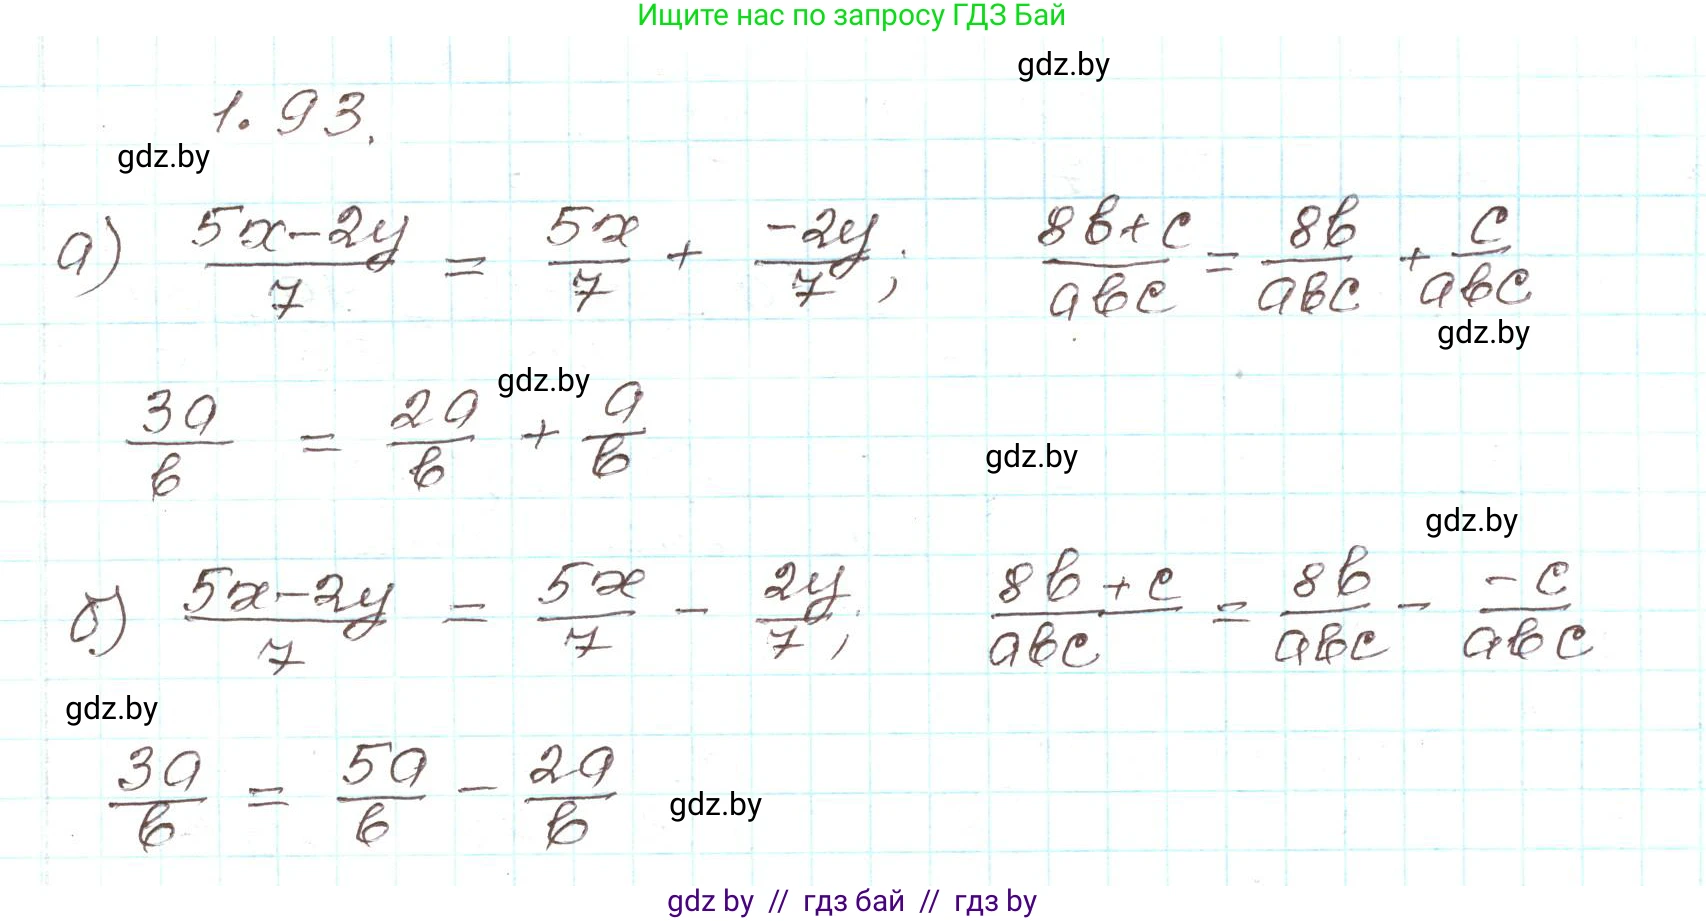 Ищите нас по запросу ГДЗ Бай
gdz.by
1.93.
gdz.by
а) (5x-2y)/7 = 5x/7 + (-2y)/7; (8b+c)/(abc) = 8b/(abc) + c/(abc)
gdz.by
gdz.by
3a/b = 2a/b + a/b
gdz.by
gdz.by
б) (5x-2y)/7 = 5x/7 - 2y/7; (8b+c)/(abc) = 8b/(abc) - (-c)/(abc)
gdz.by
3a/b = 5a/b - 2a/b
gdz.by
gdz by // гдз бай // гдз by